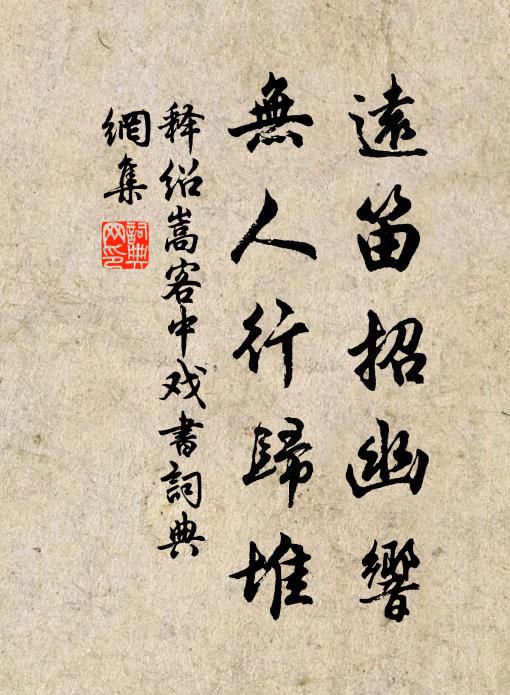 遠笛招幽響
無人行歸堆
释绍嵩客中戏書詞典
網集
詞典
网印